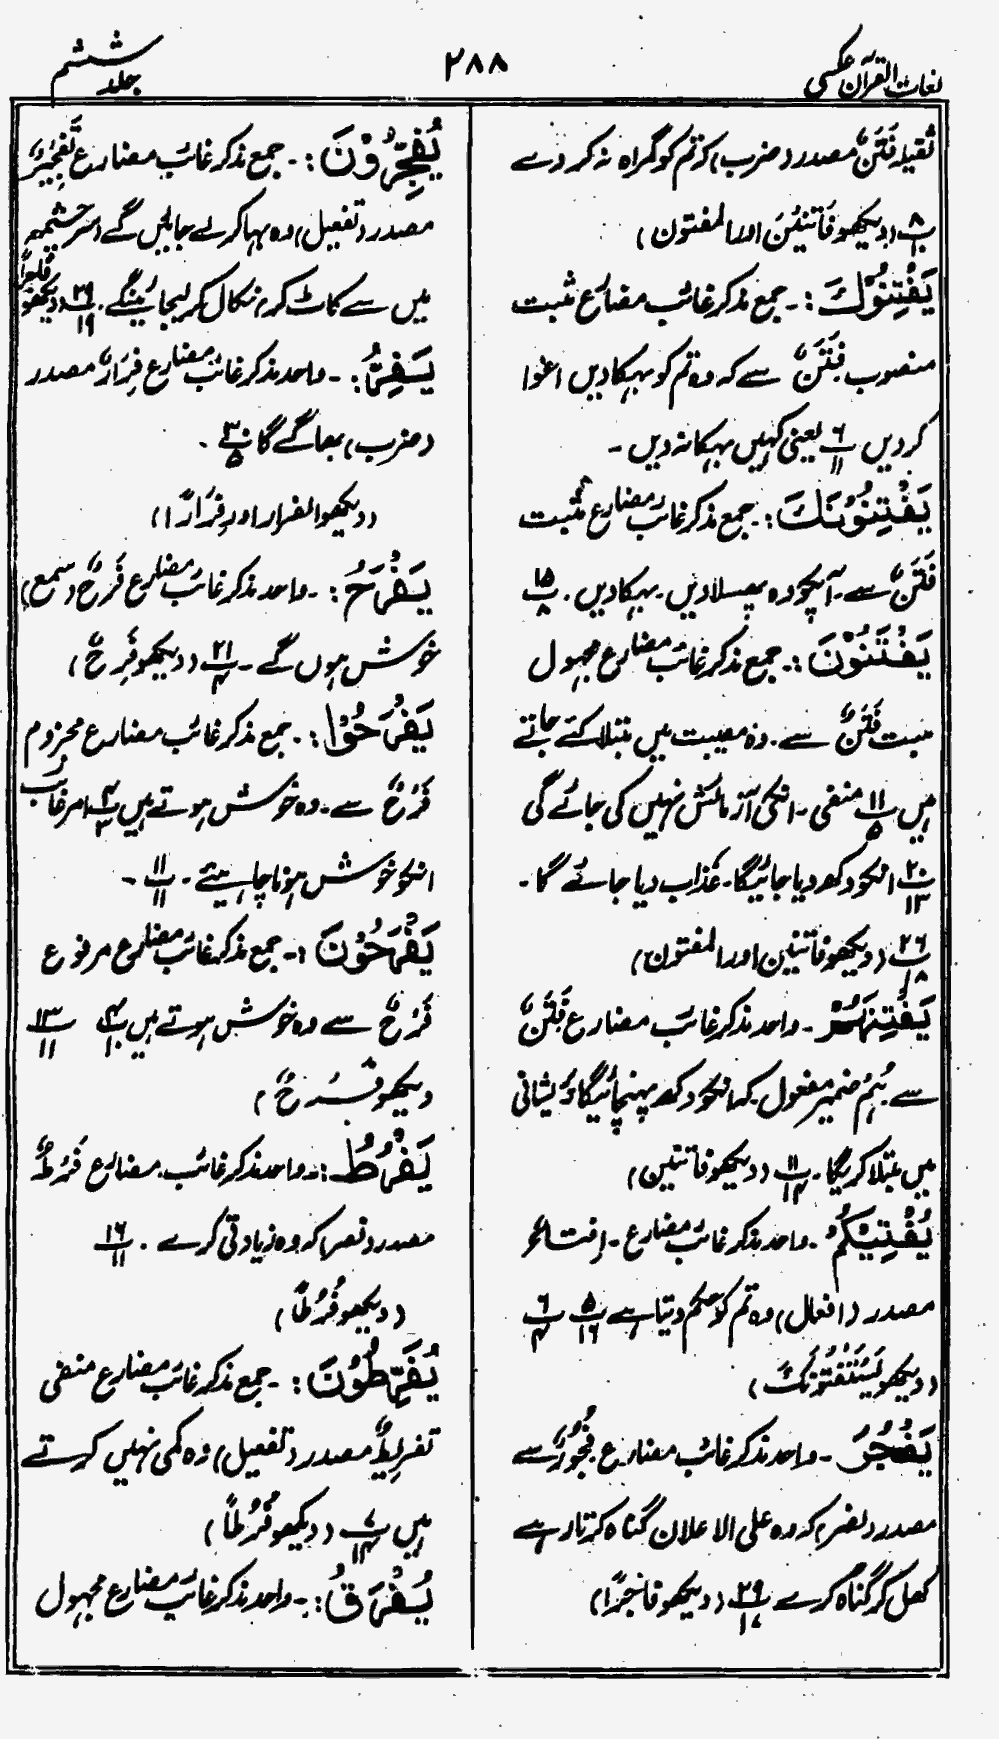 لغات القرآن عکسی
۲۸۸
جلد ششم
ثقیلہ فَتَنٌ مصدر (ضرب) کہ تم کو گمراہ نہ کر دے
۸ پ ۱۰ (دیکھو فَاتِنِیْنَ اور المفتون)
یَفْتِنُوْكَ :۔ جمع مذکر غائب مضارع مثبت
منصوب فَتَنٌ سے کہ وہ تم کو بہکا دیں اغوا
کردیں ۶ پ ۱۱ یعنی کہیں بہکا نہ دیں ۔
یَفْتِنُوْنَكَ :۔ جمع مذکر غائب مضارع مثبت
فَتَنٌ سے ۔ آپکو وہ پھسلا دیں ۔ بہکا دیں ۔ ۱۵ پ ۸
یَفْتَنُوْنَ :۔ جمع مذکر غائب مضارع مجہول
مثبت فَتَنٌ سے ۔ وہ مصیبت میں مبتلا کئے جاتے
ہیں ۱۱ پ ۵ منفی ۔ انکی آزمائش نہیں کی جائے گی
۲۰ پ ۱۳ انکو دکھ دیا جائیگا ۔ عذاب دیا جائے گا ۔
۲۶ پ ۱۸ (دیکھو فاتنین اور المفتون)
یَفْتِنَهُمْ ۔ واحد مذکر غائب مضارع فَتَنٌ
سے ہُمْ ضمیر مفعول ۔ کہ انکو دکھ پہنچائیگا پریشانی
میں مبتلا کریگا ۔ ۱۱ پ ۱۴ (دیکھو فاتنین)
یُفْتِیْكُمْ ۔ واحد مذکر غائب مضارع ۔ اِفتاءٌ
مصدر (افعال) وہ تم کو حکم دیتا ہے ۵ پ ۱۶ ۶ پ ۴
(دیکھو یَسْتَفْتُوْنَكَ)
یَفْجُرَ ۔ واحد مذکر غائب مضارع فُجُوْرٌ سے
مصدر (نصر) کہ وہ علی الاعلان گناہ کرتا رہے
کھل کر گناہ کرے ۲۹ پ ۱۷ (دیکھو فاجرًا)
یُفَجِّرُوْنَ :۔ جمع مذکر غائب مضارع تَفْجِیْرٌ
مصدر (تفعیل) وہ بہا کر لے جائیں گے (سرچشمہ
میں سے کاٹ کر) نکال کر لیجائینگے ۔ ۲۹ پ ۱۹ (دیکھو
یَفِرُّ :۔ واحد مذکر غائب مضارع فِرَارٌ مصدر
(ضرب) بھاگے گا ۳۰ پ ۵ ۔
(دیکھو الفرار اور فِرَارًا)
یَفْرَحُ :۔ واحد مذکر غائب مضارع فَرَحٌ (سمع)
خوش ہوں گے ۔ ۲۱ پ ۴ (دیکھو فَرِحٌ)
یَفْرَحُوْا :۔ جمع مذکر غائب مضارع مجزوم
فَرَحٌ سے ۔ وہ خوش ہوتے ہیں ۴ پ ۳ امر غائب
انکو خوش ہونا چاہیئے ۔ ۱۱ پ ۱۱ ۔
یَفْرَحُوْنَ :۔ جمع مذکر غائب مضارع مرفوع
فَرَحٌ سے وہ خوش ہوتے ہیں ۴ پ ۱۰ ۱۳ پ ۱۱
دیکھو فَرِحٌ)
یَفْرُطَ :۔ واحد مذکر غائب مضارع فَرْطٌ
مصدر (نصر) کہ وہ زیادتی کرے ۔ ۱۶ پ ۱۱
(دیکھو فُرُطًا)
یُفَرِّطُوْنَ :۔ جمع مذکر غائب مضارع منفی
تفریطٌ مصدر (تفعیل) وہ کمی نہیں کرتے
ہیں ۷ پ ۱۴ (دیکھو فُرُطًا)
یُفْرَقُ :۔ واحد مذکر غائب مضارع مجہول